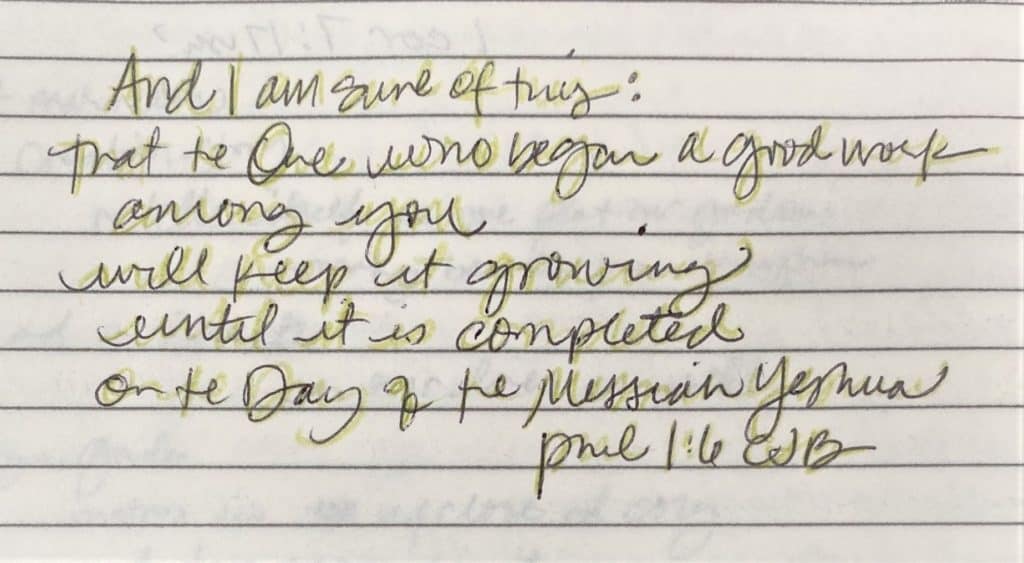 And I am sure of this:
that te One who began a good work
among you
will keep it growing
until it is completed
on te Day of te Messiah Yeshua
phil 1:6 CJB